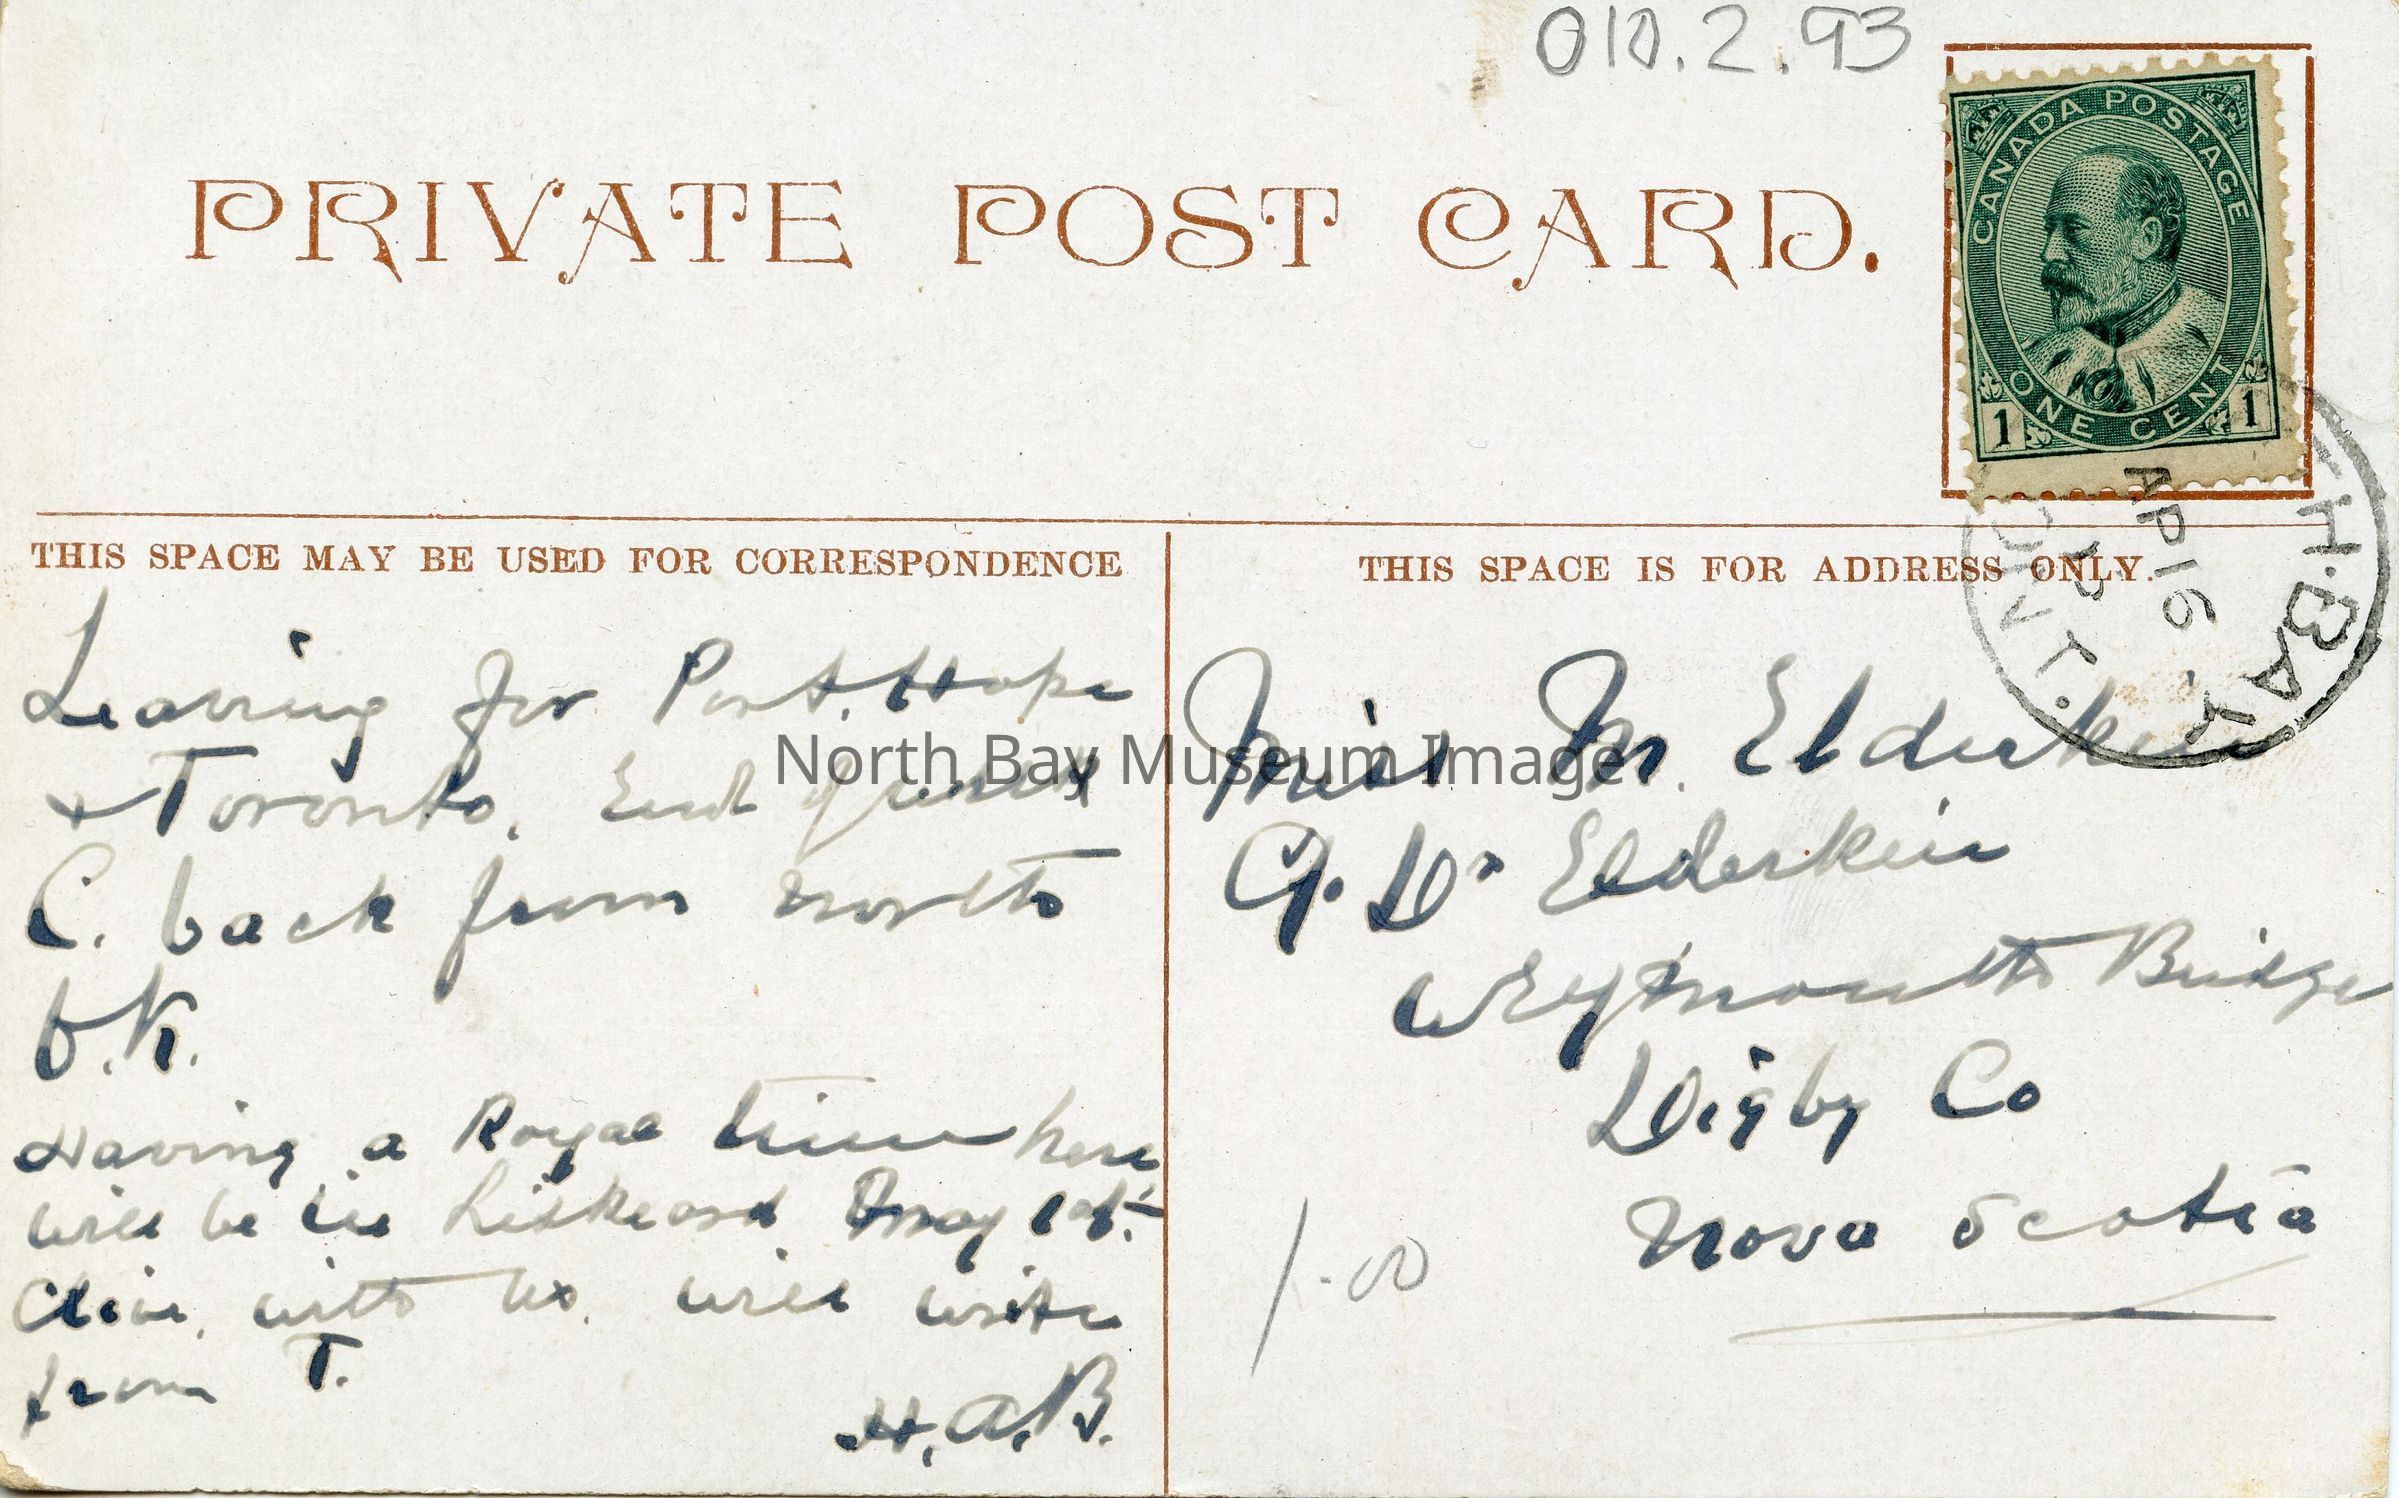 010.2.93
PRIVATE POST CARD.
CANADA POSTAGE
ONE CENT
1 1
H. BAY
AP 16
ONT.
THIS SPACE MAY BE USED FOR CORRESPONDENCE
Leaving for Port. Hope
& Toronto.
C. back from north
O.K.
Having a Royal time here
will be in Liskeard May 1st.
Clive, with us, will write
from T.
H.A.B.
THIS SPACE IS FOR ADDRESS ONLY.
Miss M. Elderkin
C/o Dr Elderkin
Weymouth Bridge
Digby Co
Nova Scotia
1.00
North Bay Museum Image